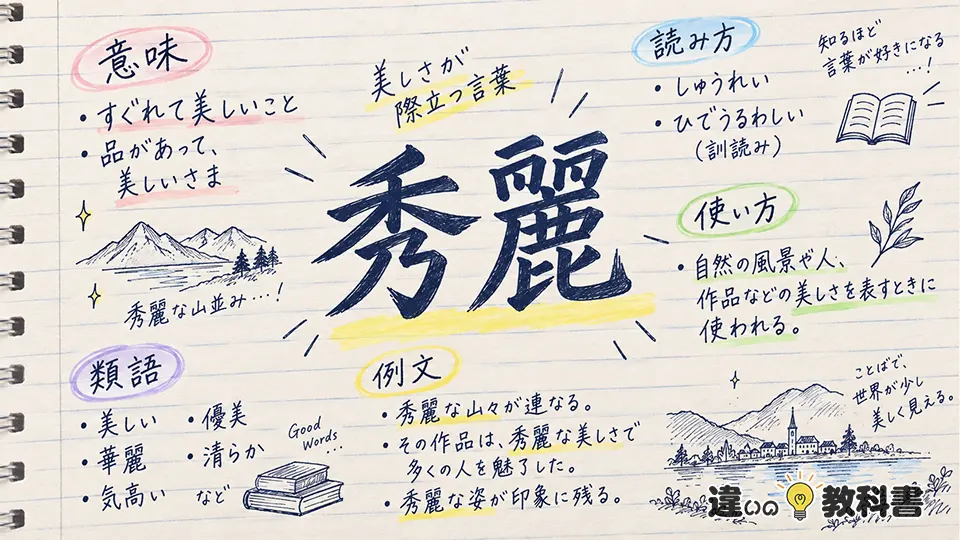 意味
・すぐれて美しいこと
・品があって、
美しいさま
秀麗な山並み…！
美しさが
際立つ言葉
秀麗
読み方
・しゅうれい
・ひでうるわしい
（訓読み）
知るほど
言葉が好きになる
…！
使い方
・自然の風景や人、
作品などの美しさを表すときに
使われる。
類語
・美しい ・優美
・華麗 ・清らか
・気高い など
Good
Words...
例文
・秀麗な山々が連なる。
・その作品は、秀麗な美しさで
多くの人を魅了した。
・秀麗な姿が印象に残る。
ことばで、
世界が少し
美しく見える。
違いの教科書